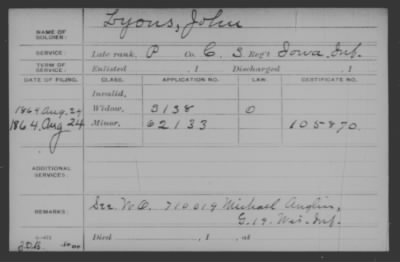 Lyons, John
NAME OF SOLDIER:
SERVICE: Late rank, P Co. C, 3 Reg't Iowa Inf.
TERM OF SERVICE: Enlisted , 1 Discharged , 1
DATE OF FILING. CLASS. APPLICATION NO. LAW CERTIFICATE NO.
Invalid,
1864 Aug. 24 Widow, 3138 O
1864. Aug 24 Minor, 62133 105870.
ADDITIONAL SERVICES:
REMARKS: See W.O. 710019 Michael Anglin,
G. 19. Wis. Inf.
Died , 1 , at